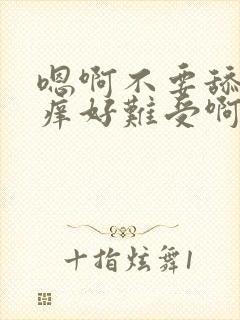 嗯啊不要舔
痒好難受啊
十指炫舞1